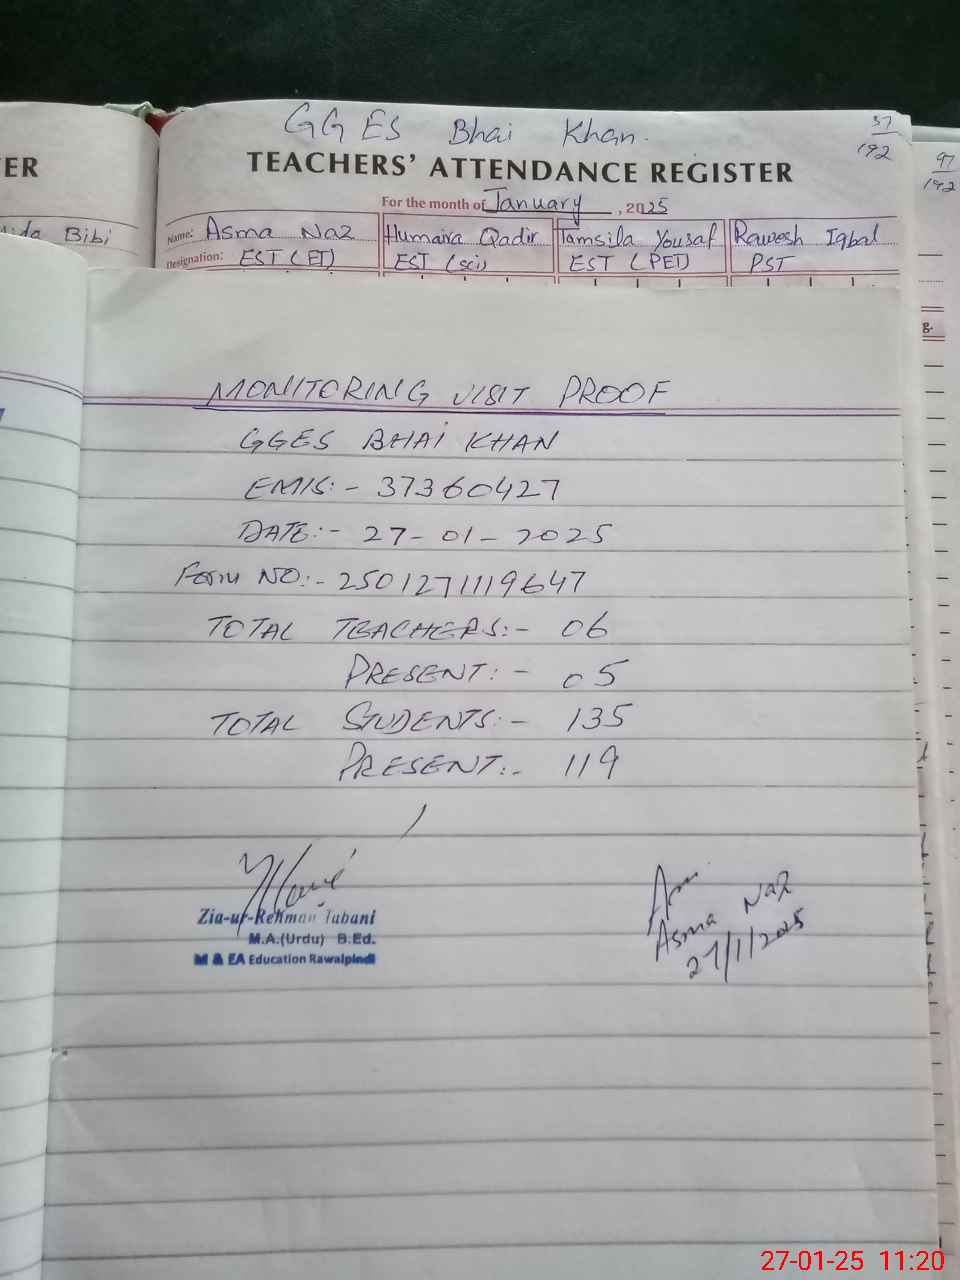 ER
GGES Bhai Khan.
37/192
97/192
TEACHERS' ATTENDANCE REGISTER
For the month of January, 2025
Bibi
Name: Asma Naz Humaira Qadir Tamsila Yousaf Rawesh Iqbal
Designation: EST (ET) EST (sci) EST (PET) PST
g.
MONITORING VISIT PROOF
GGES BHAI KHAN
EMIS:- 37360427
DATE:- 27-01-2025
Form NO:- 2501271119647
TOTAL TEACHERS:- 06
PRESENT:- 05
TOTAL STUDENTS:- 135
PRESENT:- 119
Zia-ur-Rehman Tabani
M.A.(Urdu) B.Ed.
M & EA Education Rawalpindi
Asma Naz
27/1/2025
27-01-25 11:20